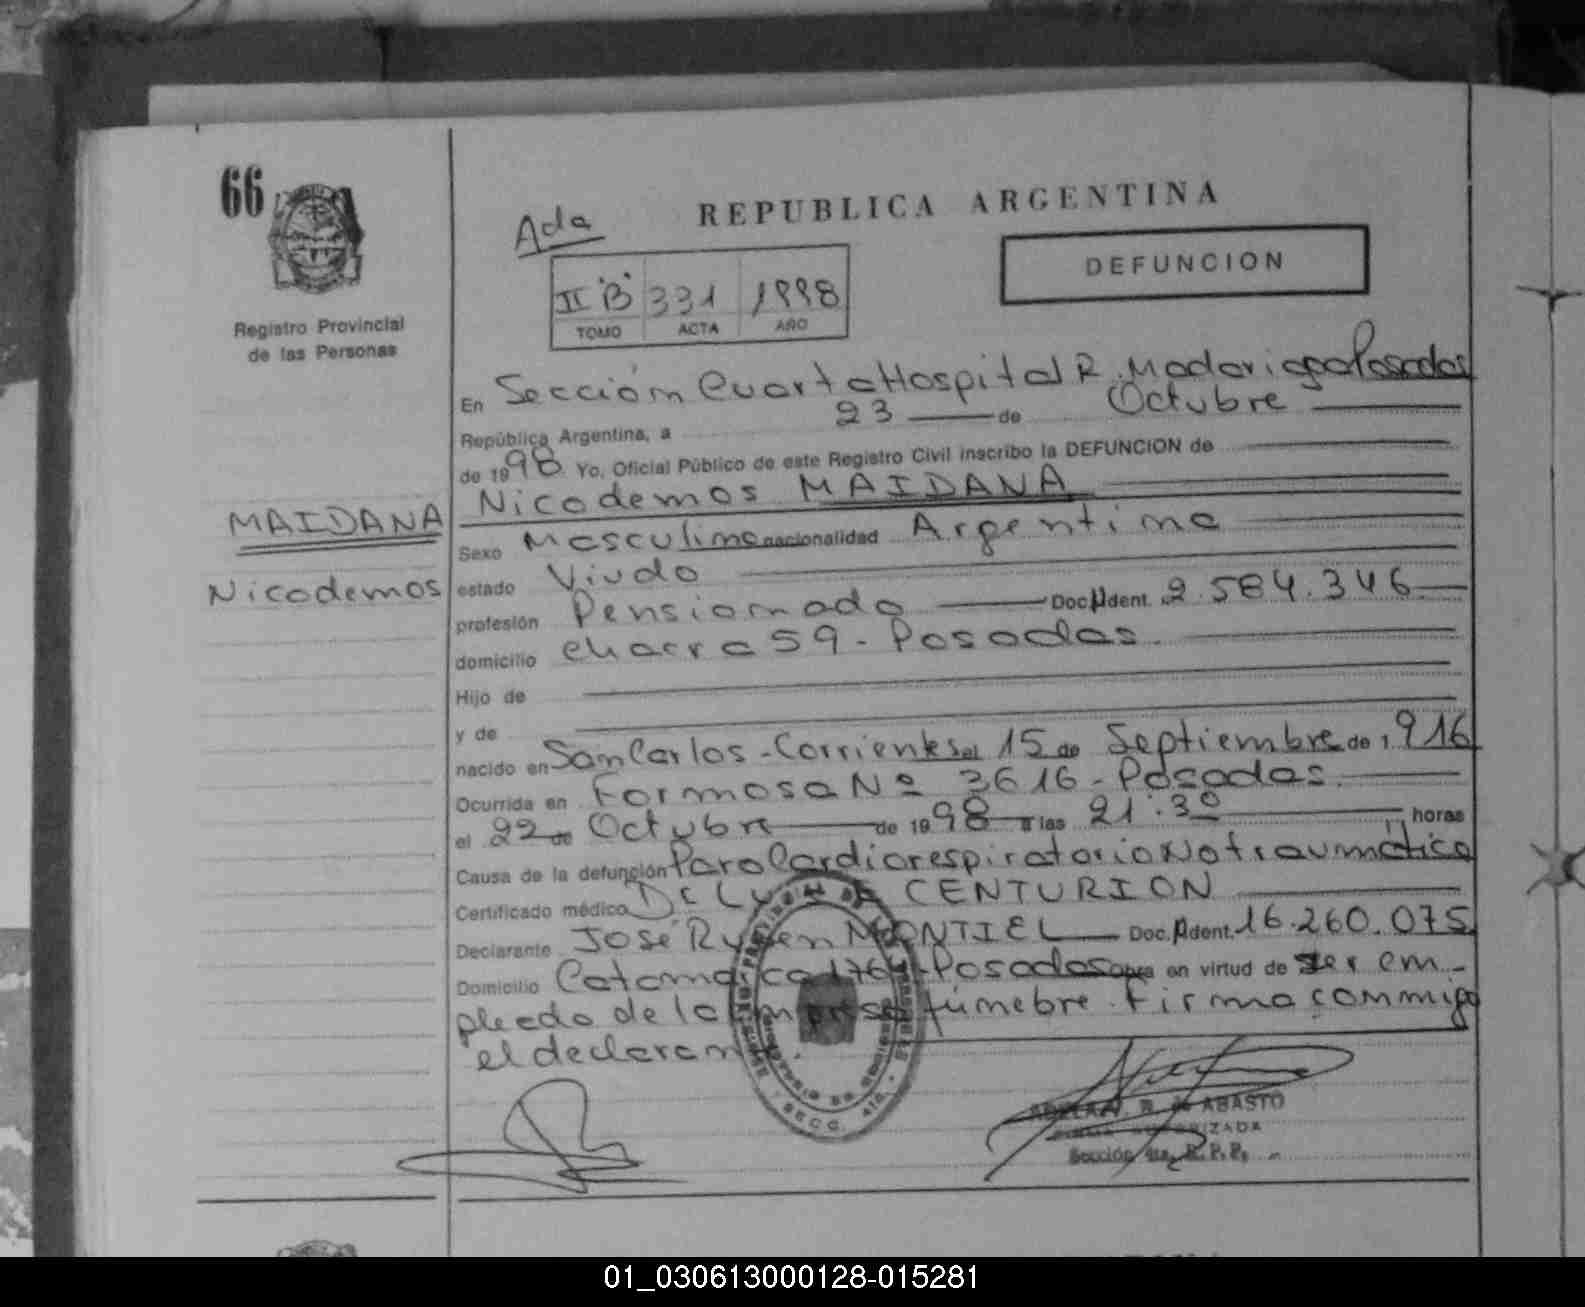 66
Registro Provincial
de las Personas
MAIDANA
Nicodemos
Ada
REPUBLICA ARGENTINA
DEFUNCION
II "B" 331 1998
TOMO ACTA AÑO
En Sección Cuarta Hospital R. Madariaga Posadas
República Argentina, a 23 de Octubre
de 1998 Yo, Oficial Público de este Registro Civil inscribo la DEFUNCION de
Nicodemos MAIDANA
Sexo Masculino nacionalidad Argentina
estado Viudo
profesión Pensionado Doc. Ident. 2.584.346
domicilio chacra 59 - Posadas.
Hijo de
y de
nacido en San Carlos - Corrientes el 15 de Septiembre de 1.916
Ocurrida en Formosa Nº 3616 - Posadas.
el 22 de Octubre de 1998 a las 21:30 horas
Causa de la defunción Paro Cardiorespiratorio No traumático
Certificado médico DE CENTURION
Declarante José Ruben MONTIEL Doc. Ident. 16.260.075
Domicilio Catamarca 176 - Posadas obra en virtud de ser em-
pleado de la Empresa fúnebre. Firma conmigo
el declarante
SECC. 4ta.
R. de ABASTO
FIRMA AUTORIZADA
Sección 4ta. R. P. P.
01_030613000128-015281